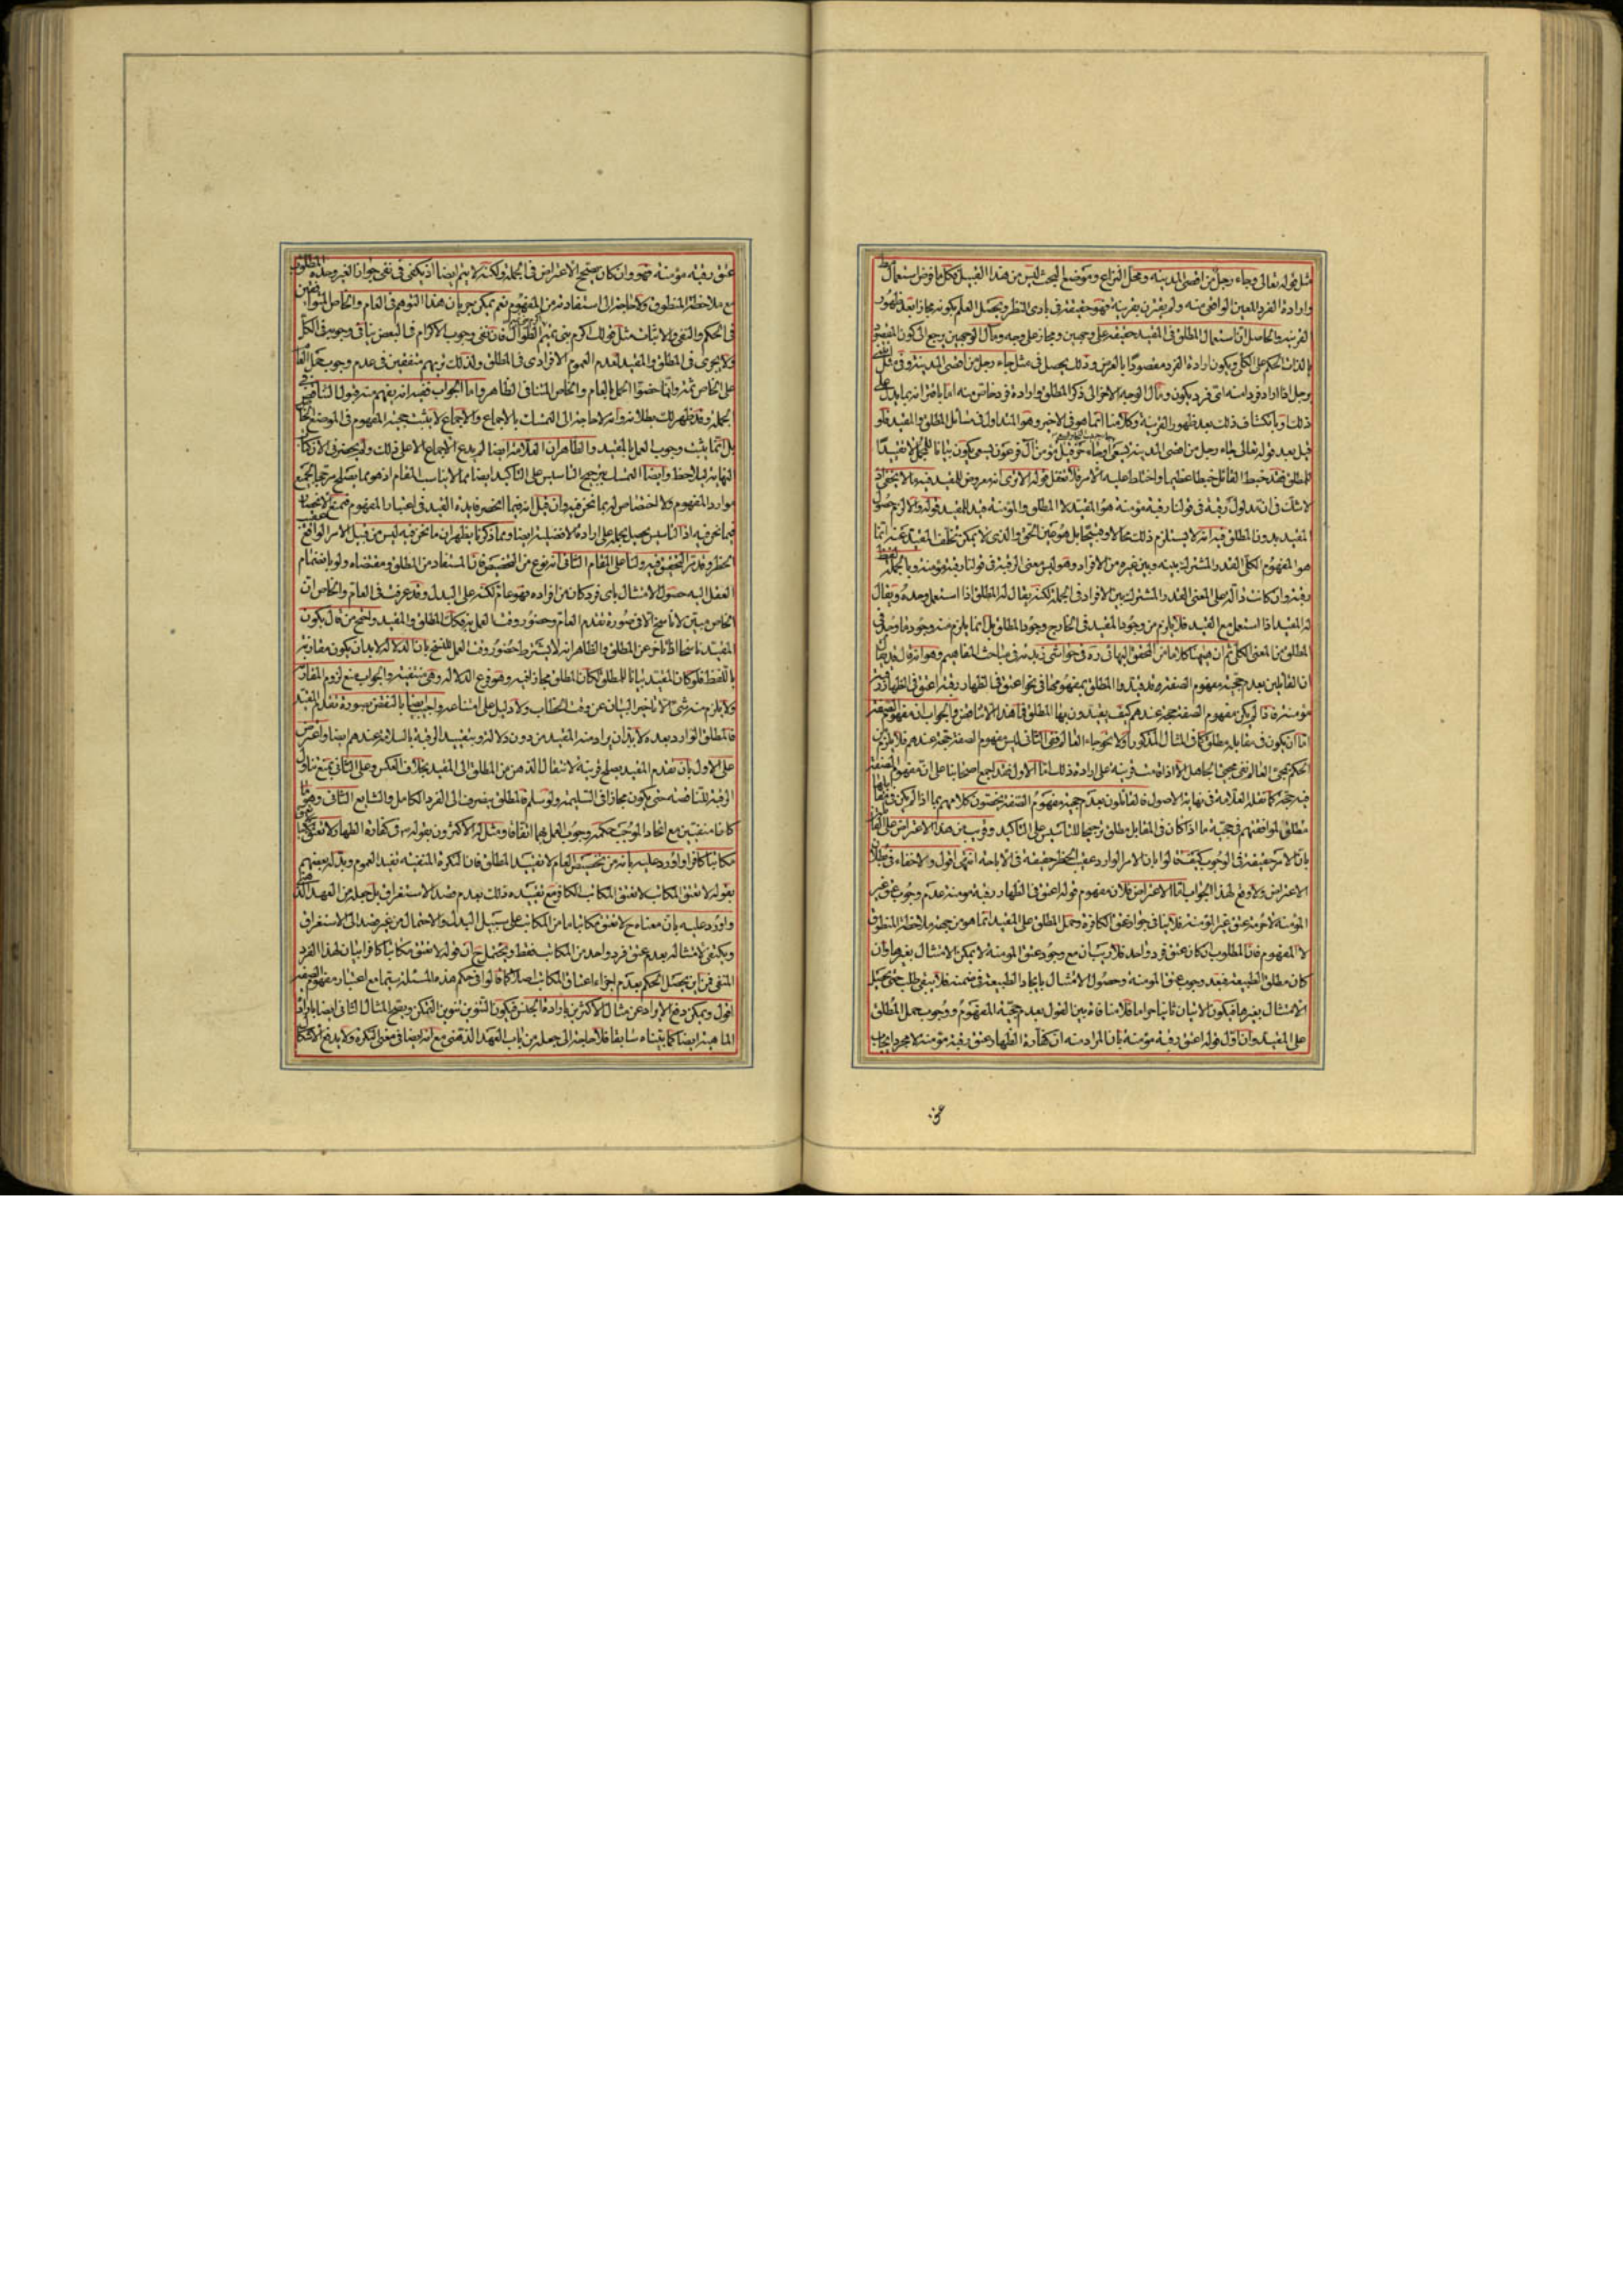 مثل قوله تعالى وجاء رجل من اقصى المدينة ومحل النزاع وموضع البحث ليس من هذا القبيل فكلما فرض استعمال
وارادة الفرد المعين الواقعى منه ولم يقترن بقرينة فهو حقيقة فى بادى النظر ويحصل العلم بكونه مجازا بعد ظهور
القرينة والحاصل ان استعمال المطلق فى المقيد حقيقة على وجهين ومجاز على وجه ومآل الوجهين يرجع الى كون المقصود
بالذات الحكم على الكلى ويكون ارادة الفرد مقصودا بالعرض وذلك يحصل فى مثل جاء رجل من اقصى المدينة وفى مثل
برجل اذا اراد فردا منه اى فرد يكون ومآل الوجه الاخر الى ذكر المطلق وارادة فرد خاص منه اما باقترانه بما يدل
ذلك او بانكشاف ذلك بعد ظهور القرينة وكلامنا انما هو فى الاخير وهو المتداول فى مسائل المطلق والمقيد فلو
قيل بعد قوله تعالى وجاء رجل من اقصى المدينة يسعى وجاء حزقيل مؤمن آل فرعون يسعى يكون بيانا للمجمل لا تقييدا
للمطلق فقد خبط القائل خبطا عظيما واختلط عليه الامر فلا تغفل قوله الا ترى انه معروض للقيد فيه ما لا يخفى اذ
لا شك فى ان مدلول رقبة فى قولنا رقبة مؤمنة هو المقيد لا المطلق والمؤمنة قيد للمقيد قوله والا لزم حصول
المقيد بدون المطلق فيه انه لا يستلزم ذلك محالا ومستحيلا بل هو عين الحق والذى لا يمكن تخلف المقيد عنه انما
هو المفهوم الكلى القدر المشترك بينه وبين غيره من الافراد وهو ليس معنى الرقبة فى قولنا رقبة مؤمنة وبالجملة
رقبة وان كانت دالة على المعنى القدر المشترك بين الافراد فى الجملة لكنه يقال له المطلق اذا استعمل وحده ويقال
له المقيد اذا استعمل مع القيد فلا يلزم من وجود المقيد فى الخارج وجود المطلق بل انما يلزم منه وجود ما وجد فى
المطلق من المعنى الكلى ثم ان هيهنا كلاما من المحقق البهائى ره فى حواشى زبدته فى مباحث المفاهيم وهو انه قال قد يقال
ان القائلين بعدم حجية مفهوم الصفة قد قيدوا المطلق بمفهومها فى نحو اعتق فى الظهار رقبة اعتق فى الظهار رقبة
مؤمنة فاذا لم يكن مفهوم الصفة حجة عندهم كيف يقيدون بها المطلق فما هذا الا تناقض والجواب ان مفهوم الصفة
اما ان يكون فى مقابله مطلق كما فى المثال المذكور اولا نحو جاء العالم ففى الثانى ليس مفهوم الصفة حجة عندهم فلا يلزم من
الحكم بمجئ العالم نفى مجئ الجاهل الا اذا قامت قرينة على ارادة ذلك اما الاول فقد اجمع اصحابنا على ان مفهوم الصفة
فيه حجة كما نقله العلامة فى نهاية الاصول فالقائلون بعدم حجية مفهوم الصفة يخصون كلامهم بما اذا لم يكن فى مقابلها
مطلق لموافقتهم فى حجية ما اذا كان فى المقابل مطلق ترجيحا للتأسيس على التأكيد وقريب من هذا الاعتراض على
بان الامر حقيقة فى الوجوب كيف قالوا بان الامر الوارد عقيب الحظر حقيقة فى الاباحة انتهى اقول ولا خفاء فى بطلان
الاعتراض ولا وقع لهذا الجواب اما الاعتراض فلان مفهوم قوله اعتق فى الظهار رقبة مؤمنة عدم وجوب عتق غير
المؤمنة لا حرمة عتق غير المؤمنة فلا ينافى جواز عتق الكافرة وحمل المطلق على المقيد انما هو من جهة ملاحظة المنطوق
لا المفهوم فان المطلوب ان كان عتق فرد واحد فلا ريب ان مع وجود عتق المؤمنة لا يمكن الامتثال بغيرها وان
كان مطلق الطبيعة فبعد وجوب عتق المؤمنة وحصول الامتثال بايجاد الطبيعة فى ضمنه فلا يبقى طلب حتى يحصل
الامتثال بغيرها فيكون الاتيان ثانيا حراما فلا منافاة بين القول بعدم حجية المفهوم ووجوب حمل المطلق
على المقيد وان اول قوله اعتق رقبة مؤمنة بان المراد منه ان كفارة الظهار عتق رقبة مؤمنة لا مجرد ايجاب
عتق رقبة مؤمنة فهو وان كان يصحح الاعتراض فى الجملة ولكنه لا يتم ايضا اذ يكفى فى نفى جواز الغير وحدة المطلوب
مع ملاحظة المنطوق ولا حاجة الى استفادته من المفهوم نعم يمكن جريان هذا التوهم فى العام والخاص المتوافقين
فى الحكم والنفى والاثبات مثل قولك اكرم بنى تميم الطوال فان نفى وجوب الاكرام فى البعض ينافى وجوبه فى الكل
ولا يجرى فى المطلق والمقيد لعدم العموم الافرادى فى المطلق ولذلك تريهم متفقين فى عدم وجوب حمل العام
على الخاص ثمة وانما خصوا الحمل بالعام والخاص المتنافى الظاهر واما الجواب ففيه انه يفهم منه قبول التناقض فى
الجملة وقد ظهر لك بطلانه وانه لا حاجة الى التمسك بالاجماع والاجماع لا يثبت حجية المفهوم فى الموضع الخاص
بل انما يثبت وجوب العمل بالمقيد والظاهر ان العلامة ايضا لم يدع الاجماع الا على ذلك ولم يحضرنى الآن كتاب
النهاية ليلاحظ وايضا التمسك بترجيح التأسيس على التأكيد ايضا مما لا يناسب المقام اذ هو مما يصلح مرجحا لجميع
موارد المفهوم ولا اختصاص له بما نحن فيه وان قيل انه فيما انحصر فايدة القيد فى اعتبار المفهوم فمنع الانحصار
فيما نحن فيه اذ التأسيس يحصل بحمله على ارادة الافضلية ايضا ومما ذكرنا يظهر ان ما نحن فيه ليس من قبيل الامر الواقع عقيب
الحظر وقد مر التحقيق فيه ولنا على المقام الثانى انه نوع من التخصيص فان المستفاد من المطلق ومقتضاه ولو بانضمام
العقل اليه حصول الامتثال باى فرد كان من افراده فهو عام لكنه على البدل وقد عرفت فى العام والخاص ان
الخاص مبين لا ناسخ الا فى صورة تقدم العام وحضور وقت العمل به فكذلك المطلق والمقيد واحتج من قال بكون
المقيد ناسخا اذا تأخر عن المطلق والظاهر انه لا يشترط حضور وقت العمل للنسخ بان الدلالة لا بد ان يكون مقارنة
باللفظ فلو كان المقيد بيانا للمطلق لكان المطلق مجازا فيه وهو فرع الدلالة وهى منتفية والجواب منع لزوم المقارنة
ولا يلزم منه شئ الا تأخير البيان عن وقت الخطاب ولا دليل على امتناعه واجيب ايضا بالنقض بصورة تقدم المقيد
فالمطلق الوارد بعده لا بد ان يراد منه المقيد من دون دلالة وبتقييد الرقبة بالسلامة عندهم ايضا واعترض
على الاول بان تقدم المقيد يصلح قرينة لانتقال الذهن من المطلق الى المقيد بخلاف العكس وعلى الثانى بمنع تناول
الرقبة للناقصة حتى يكون مجازا فى السليمة ولو سلم فالمطلق ينصرف الى الفرد الكامل والشايع الثانى
كانا منفيين مع اتحاد الموجب حكمه وجوب العمل بهما اتفاقا ومثل له الاكثرون بقوله فى كفارة الظهار لا تعتق
مكاتبا كافرا واورد عليه بانه من تخصيص العام لا تقييد المطلق فان النكرة المنفية تفيد العموم وبدله بعضهم
بقوله لا تعتق المكاتب لا تعتق المكاتب الكافر مع تقييده ذلك بعدم قصد الاستغراق بل جعله من العهد الذهنى
واورد عليه بان معناه ح لا تعتق مكاتبا ما من المكاتب على سبيل البدلية والاحتمال من غير قصد الى الاستغراق
ويكفى لامتثاله بعدم عتق فرد واحد من المكاتب فقط ويحتمل ح ان قوله لا تعتق مكاتبا كافرا بيان لهذا الفرد
المنفى فمن اين يحصل الحكم بعدم اجزاء اعتاق المكاتب اصلا كما قالوا فى حكم هذه المسئلة سيما مع اعتبار مفهوم الصفة
اقول ويمكن دفع الايراد عن مثال الاكثرين بارادة الجنس فيكون التنوين تنوين التمكن ويصح المثال الثانى ايضا بارادة
الماهية ايضا كما بيناه سابقا فلا حاجة الى جعله من باب العهد الذهنى مع انه ايضا فى معنى النكرة ولا يدفع الاشكال
عتق